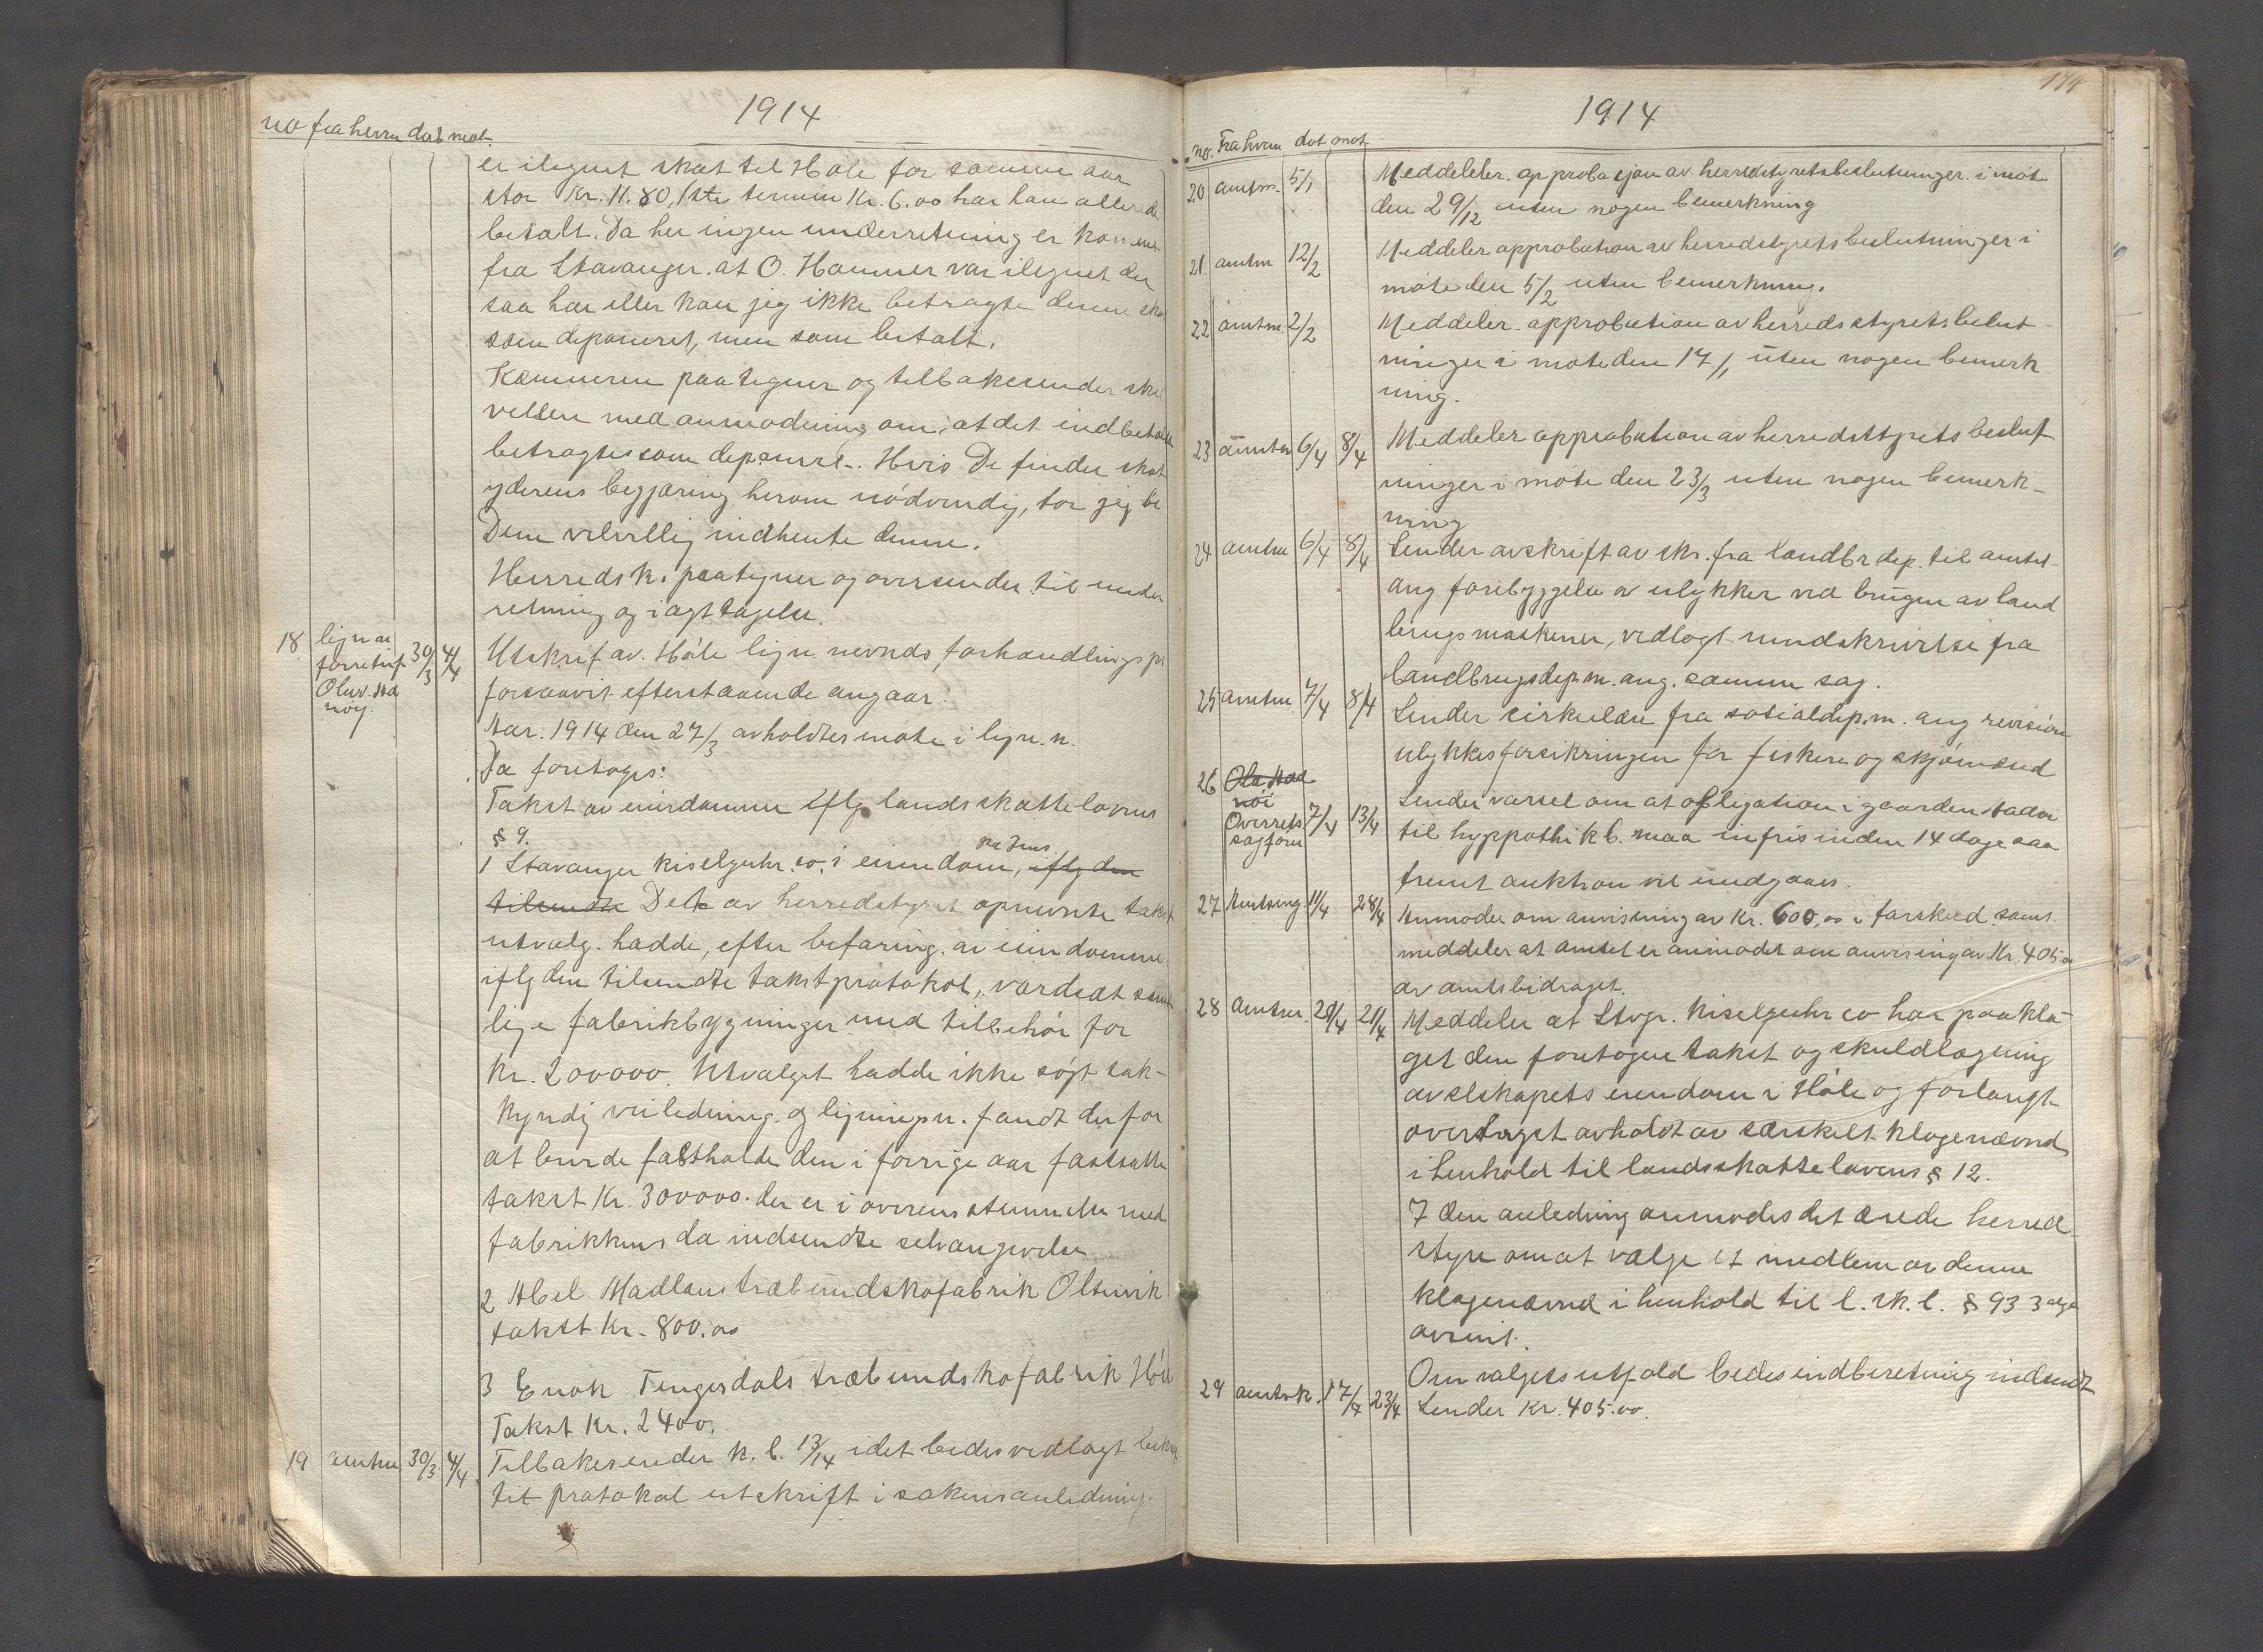 1914
no fra hvem dat mot.
er ilignet skat til Høle for samme aar
stor Kr. 11.80, 1ste termin Kr. 6.00 har han allerede
betalt. Da her ingen underretning er kommet
fra Stavanger at O. Hammer var ilignet der
saa har eller kan jeg ikke betragte denne skat
som deponeret, men som betalt.
Kæmneren paategner og tilbakesender skri
velsen med anmodning om, at det indbetalte
betragtes som deponeret. Hvis De finder skat
yderens begjæring herom nødvendig, bør jeg be
Dem velvillig indhente denne.
Herredsk. paategner og oversender til under
retning og iagttagelse.
18 lign.n forretnf Olav. Ha nøy. 30/3 4/4 Utskrif av Høle lign. nevnds forhandlingspr
forsaavit efterstaaende angaar:
Aar. 1914 den 27/3 avholdtes møte i lign. n.
Da foretoges:
Takst av eiendomme iflg landsskattelovens
§ 9.
1 Stavanger Kiselguhr.co.s eiendom, iflg den
tilsendte Det av herredstyret opnevnte takst
utvalg hadde, efter befaring av eiendomme
iflg den tilsendte takstprotokol, værdsat samt
lige fabrikbygninger med tilbehør for
Kr. 200000. Utvalget hadde ikke søgt sak-
kyndig veiledning og ligningsn. fandt derfor
at burde fastholde den i forrige aar fastsatte
takst Kr. 300000. der er i overensstemmelse med
fabrikkens da indsendte selvangivelse
2 Abel Madlands træbundskofabrik Oltesvik
takst Kr. 800.00
3 Enok Tengesdals træbundskofabrik Høle
Takst Kr. 2400.
19 amtm 30/3 4/4 Tilbakesender k. b. 13/14 idet bedes vedlagt bekr
til protokol utskrift i sakens anledning.
174
1914
no. Fra hvem dat mot
20 amtm. 5/1 Meddeleler approbasjon av herredstyretsbeslutninger i møte
den 29/12 uten nogen bemerkning
21 amtm 12/2 Meddeler approbation av herredstyrets beslutninger i
møte den 5/2 uten bemerkning.
22 amtm. 2/2 Meddeler approbation av herredsstyrets beslut
ninger i møte den 17/1 uten nogen bemerk
ning.
23 amtm 6/4 8/4 Meddeler approbation av herredsstyrets beslut
ninger i møte den 23/3 uten nogen bemerk-
ning
24 amtm 6/4 8/4 Sender avskrift av skr. fra landbr dep. til amtet
ang forebyggelse av ulykker ved brugen av land
brugsmaskiner, vedlagt rundskrivelse fra
landbrugsdep.m. ang. samme sag.
25 amtm. 7/4 8/4 Sender cirkulære fra sosialdep.m. ang revision
ulykkesforsikringen for fiskere og sjømænd
26 Ola Had nøi Overrets sagfører 7/4 13/4 Sender varsel om at obligation i gaarden Hadnøi
til hyppothik b. maa infris inden 14 dage saa
fremt auktion vil undgaaes.
27 Amtsing. 11/4 28/4 Anmoder om anvisning av Kr. 600,00 i forskud samt
meddeler at amtet er anmodet om anvisning av Kr. 405.00
av amtsbidraget.
28 Amtm. 20/4 21/4 Meddeler at Stvgr. Kiselguhr co har paakla-
get den foretagne takst og skuldlægning
av selskapets eiendom i Høle og forlangt
overtagst avholdt av særskilt klagenævnd
i henhold til landsskattelovens § 12.
I den anledning anmodes det ærede herred
styre om at vælge et medlem av denne
klagenævnd i henhold til l. sk. l. § 93 3dje
avsnit.
Om valgets utfald bedes indberetning indsendt
29 amtsk. 17/4 23/4 Sender Kr. 405.00.